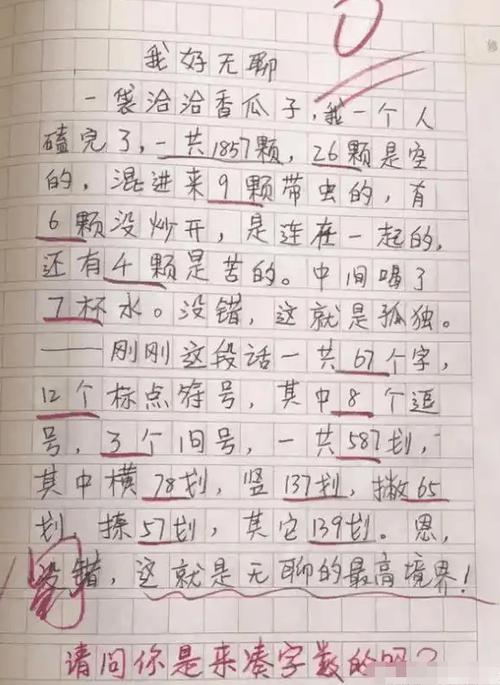 我好无聊
一袋洽洽香瓜子,我一个人
磕完了,一共1857颗,26颗是空
的,混进来9颗带虫的,有
6颗没炒开,是连在一起的,
还有4颗是苦的。中间喝了
7杯水。没错,这就是孤独。
——刚刚这段话一共67个字,
12个标点符号,其中8个逗
号,3个旧号,一共587划,
其中横78划,竖137划,撇65
划,捺57划,其它139划。恩,
没错,这就是无聊的最高境界!
请问你是来凑字数的吗?